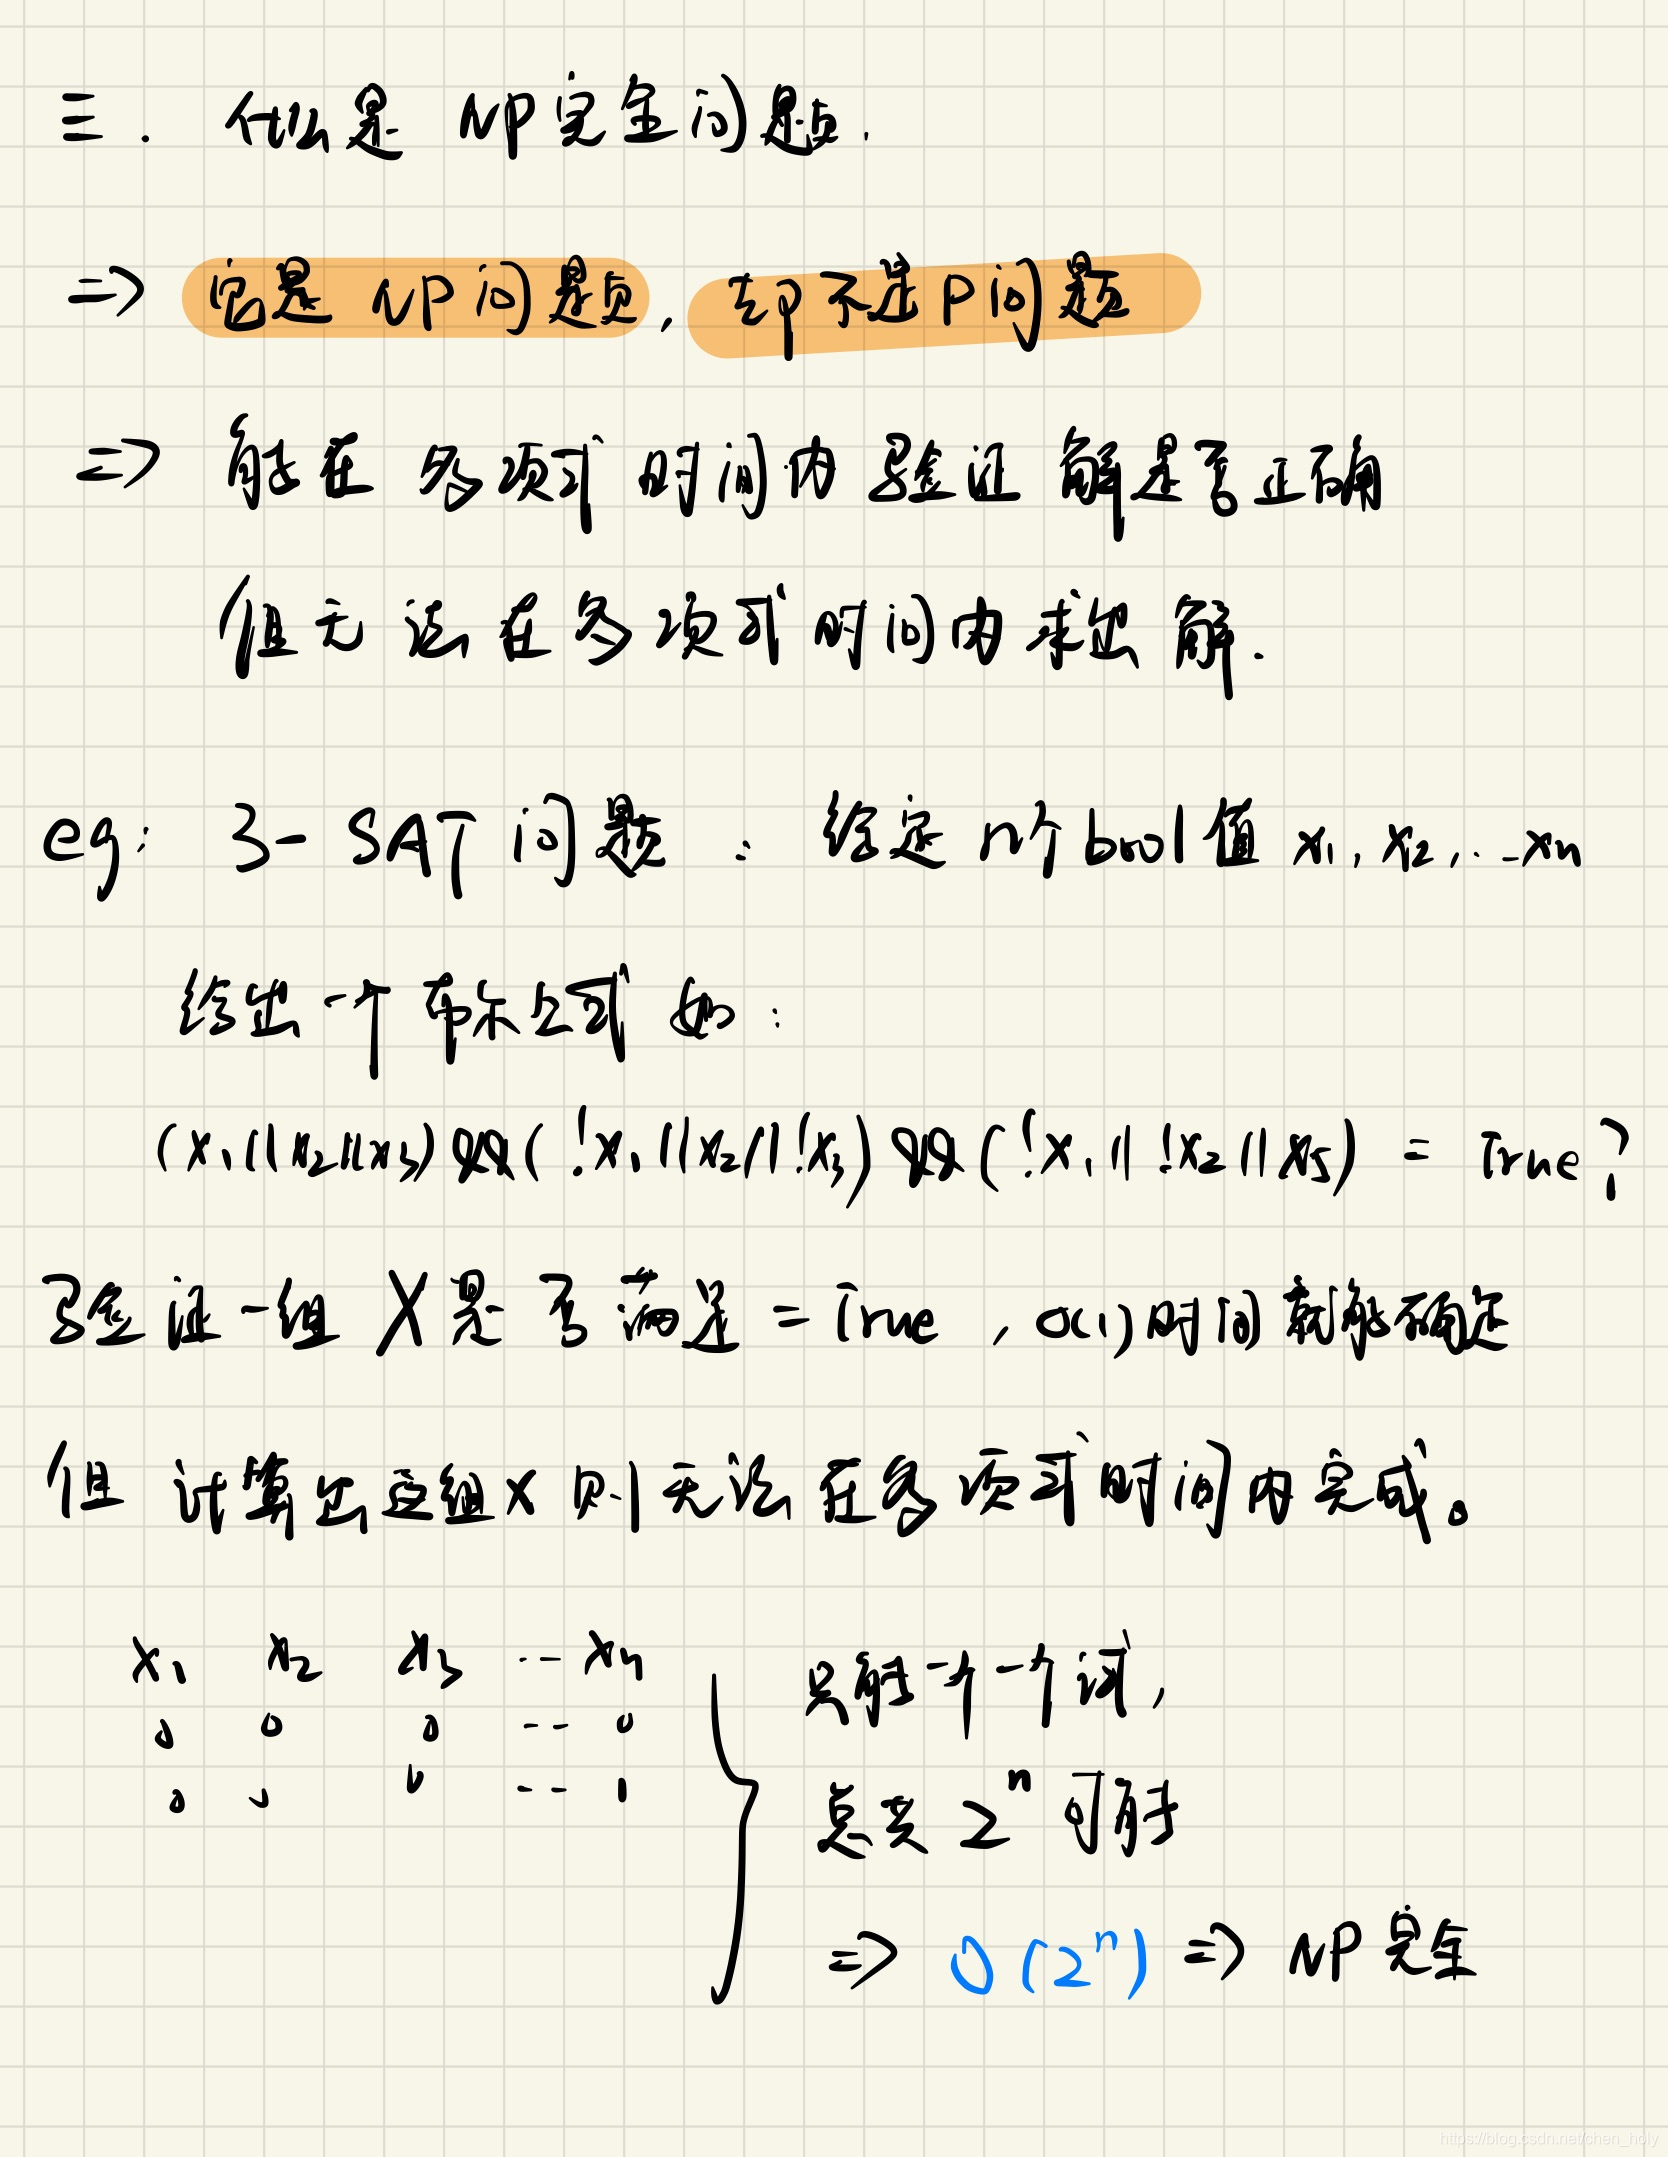 三. 什么是 NP完全问题.
=> 它是 NP问题, 却不是P问题
=> 能在 多项式 时间内 验证 解是否正确
但无法在多项式时间内求出 解.
eg: 3-SAT问题: 给定 n个bool值 x₁, x₂, ... xn
给出一个布尔公式 如:
(x₁||x₂||x₃) && (!x₁||x₂||!x₃) && (!x₁||!x₂||x₅) = True?
验证一组 X是否满足=True, O(1)时间就能确定
但 计算出这组X 则无法在多项式时间内完成。
x₁ x₂ x₃ ... xn
0 0 0 ... 0
0 0 0 ... 1
只能一个一个试,
总共 2ⁿ 可能
=> O(2ⁿ) => NP完全
https://blog.csdn.net/chen_holy